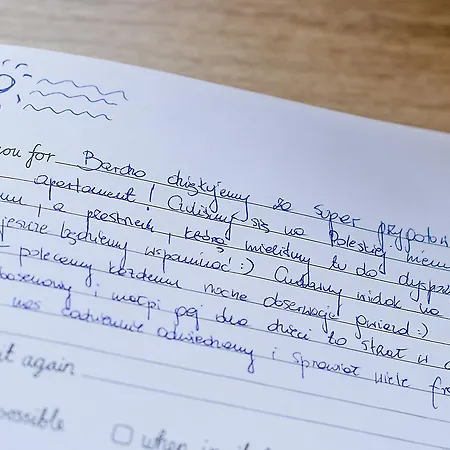 you for Bardzo dziękujemy za super przygotow
apartament! Cudiśmy się na Poleskiej niemu
i a przestrzeń, którą mieliśmy tu do dyspoz
jeszcze będziemy wspominać :) Cudowny widok na
polecamy każdemu nocne obserwacje gwiazd :)
basenowy i małpi gaj dla dzieci to strzał w
nas codziennie odwiedzany i sprawiał wiele fr
it again
possible when